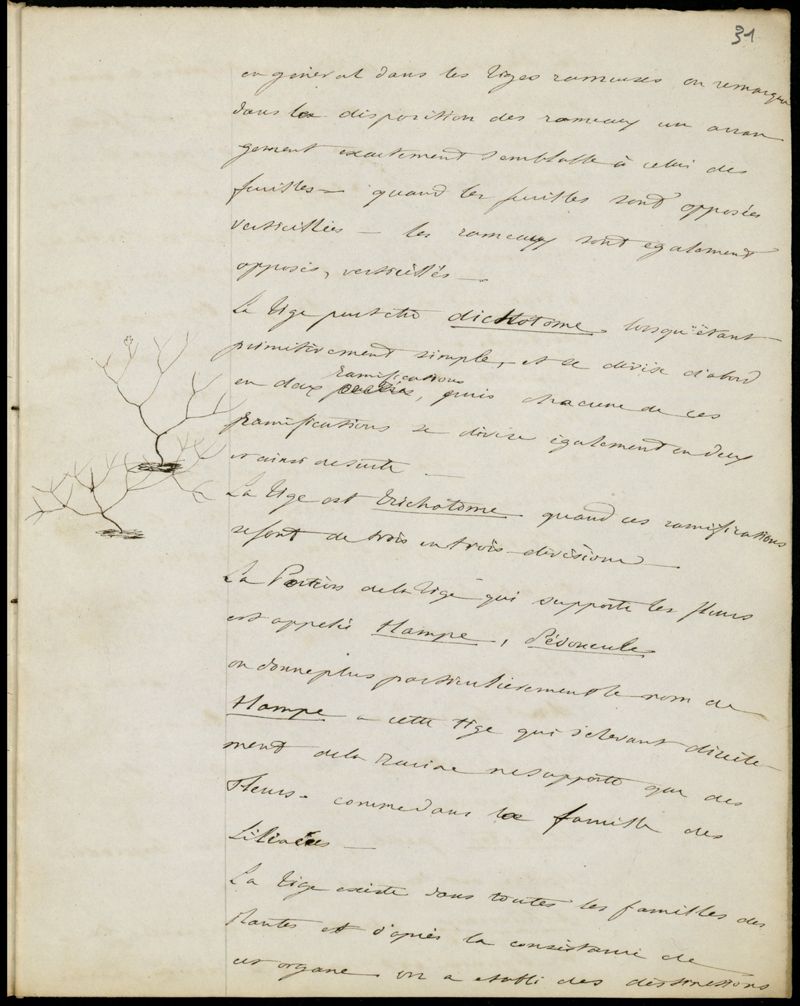 31
en général dans les tiges rameuses on remarque
dans la disposition des rameaux un arran
gement exactement semblable à celui des
feuilles — quand les feuilles sont opposées
verticillées — les rameaux sont également
opposés, verticillés —
La tige peut être dichotome, lorsqu'étant
primitivement simple, et se divise d'abord
ramifications
en deux parties, puis chacune de ces
ramifications se divise également en deux
et ainsi de suite —
La tige est trichotome quand ces ramifications
se font de trois en trois divisions —
La Portion de la tige qui supporte les fleurs
est appelée Hampe, Pédoncule
on donne plus particulièrement le nom de
Hampe a cette tige qui s'élevant directe-
ment de la Racine ne supporte que des
Fleurs — comme dans la famille des
Liliacées —
La tige existe dans toutes les familles des
Plantes et d'après la consistance de
cet organe on a établi des distinctions